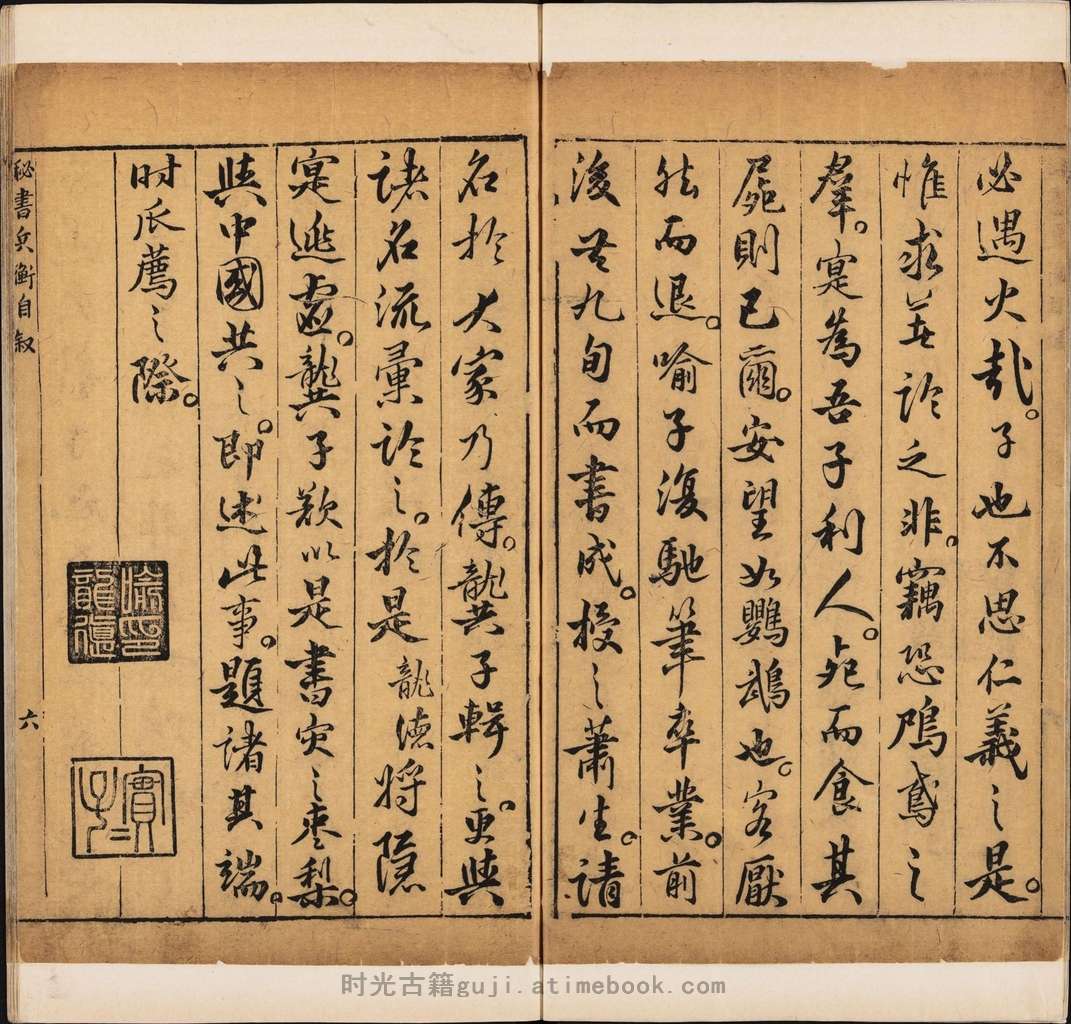 必遇火哉。子也不思仁義之是。
惟求芸論之非。竊恐鴟鳶之
羣。寔為吾子利人。死而食其
屍則已爾。安望如鸚鵡也。客厭
然而退。喻子復馳筆卒業。前
後共九旬而書成。授之蕭生。請
名於大家乃傳。龔子輯之。更與
諸名流彙論之。於是龍德將隱
寔逃虛。龔子欲以是書灾之枣梨。
與中國共之。即述此事。題諸其端。
时瓜薦之際。
喻印龍德
實子
秘書兵衡自叙
六
时光古籍guji.atimebook.com